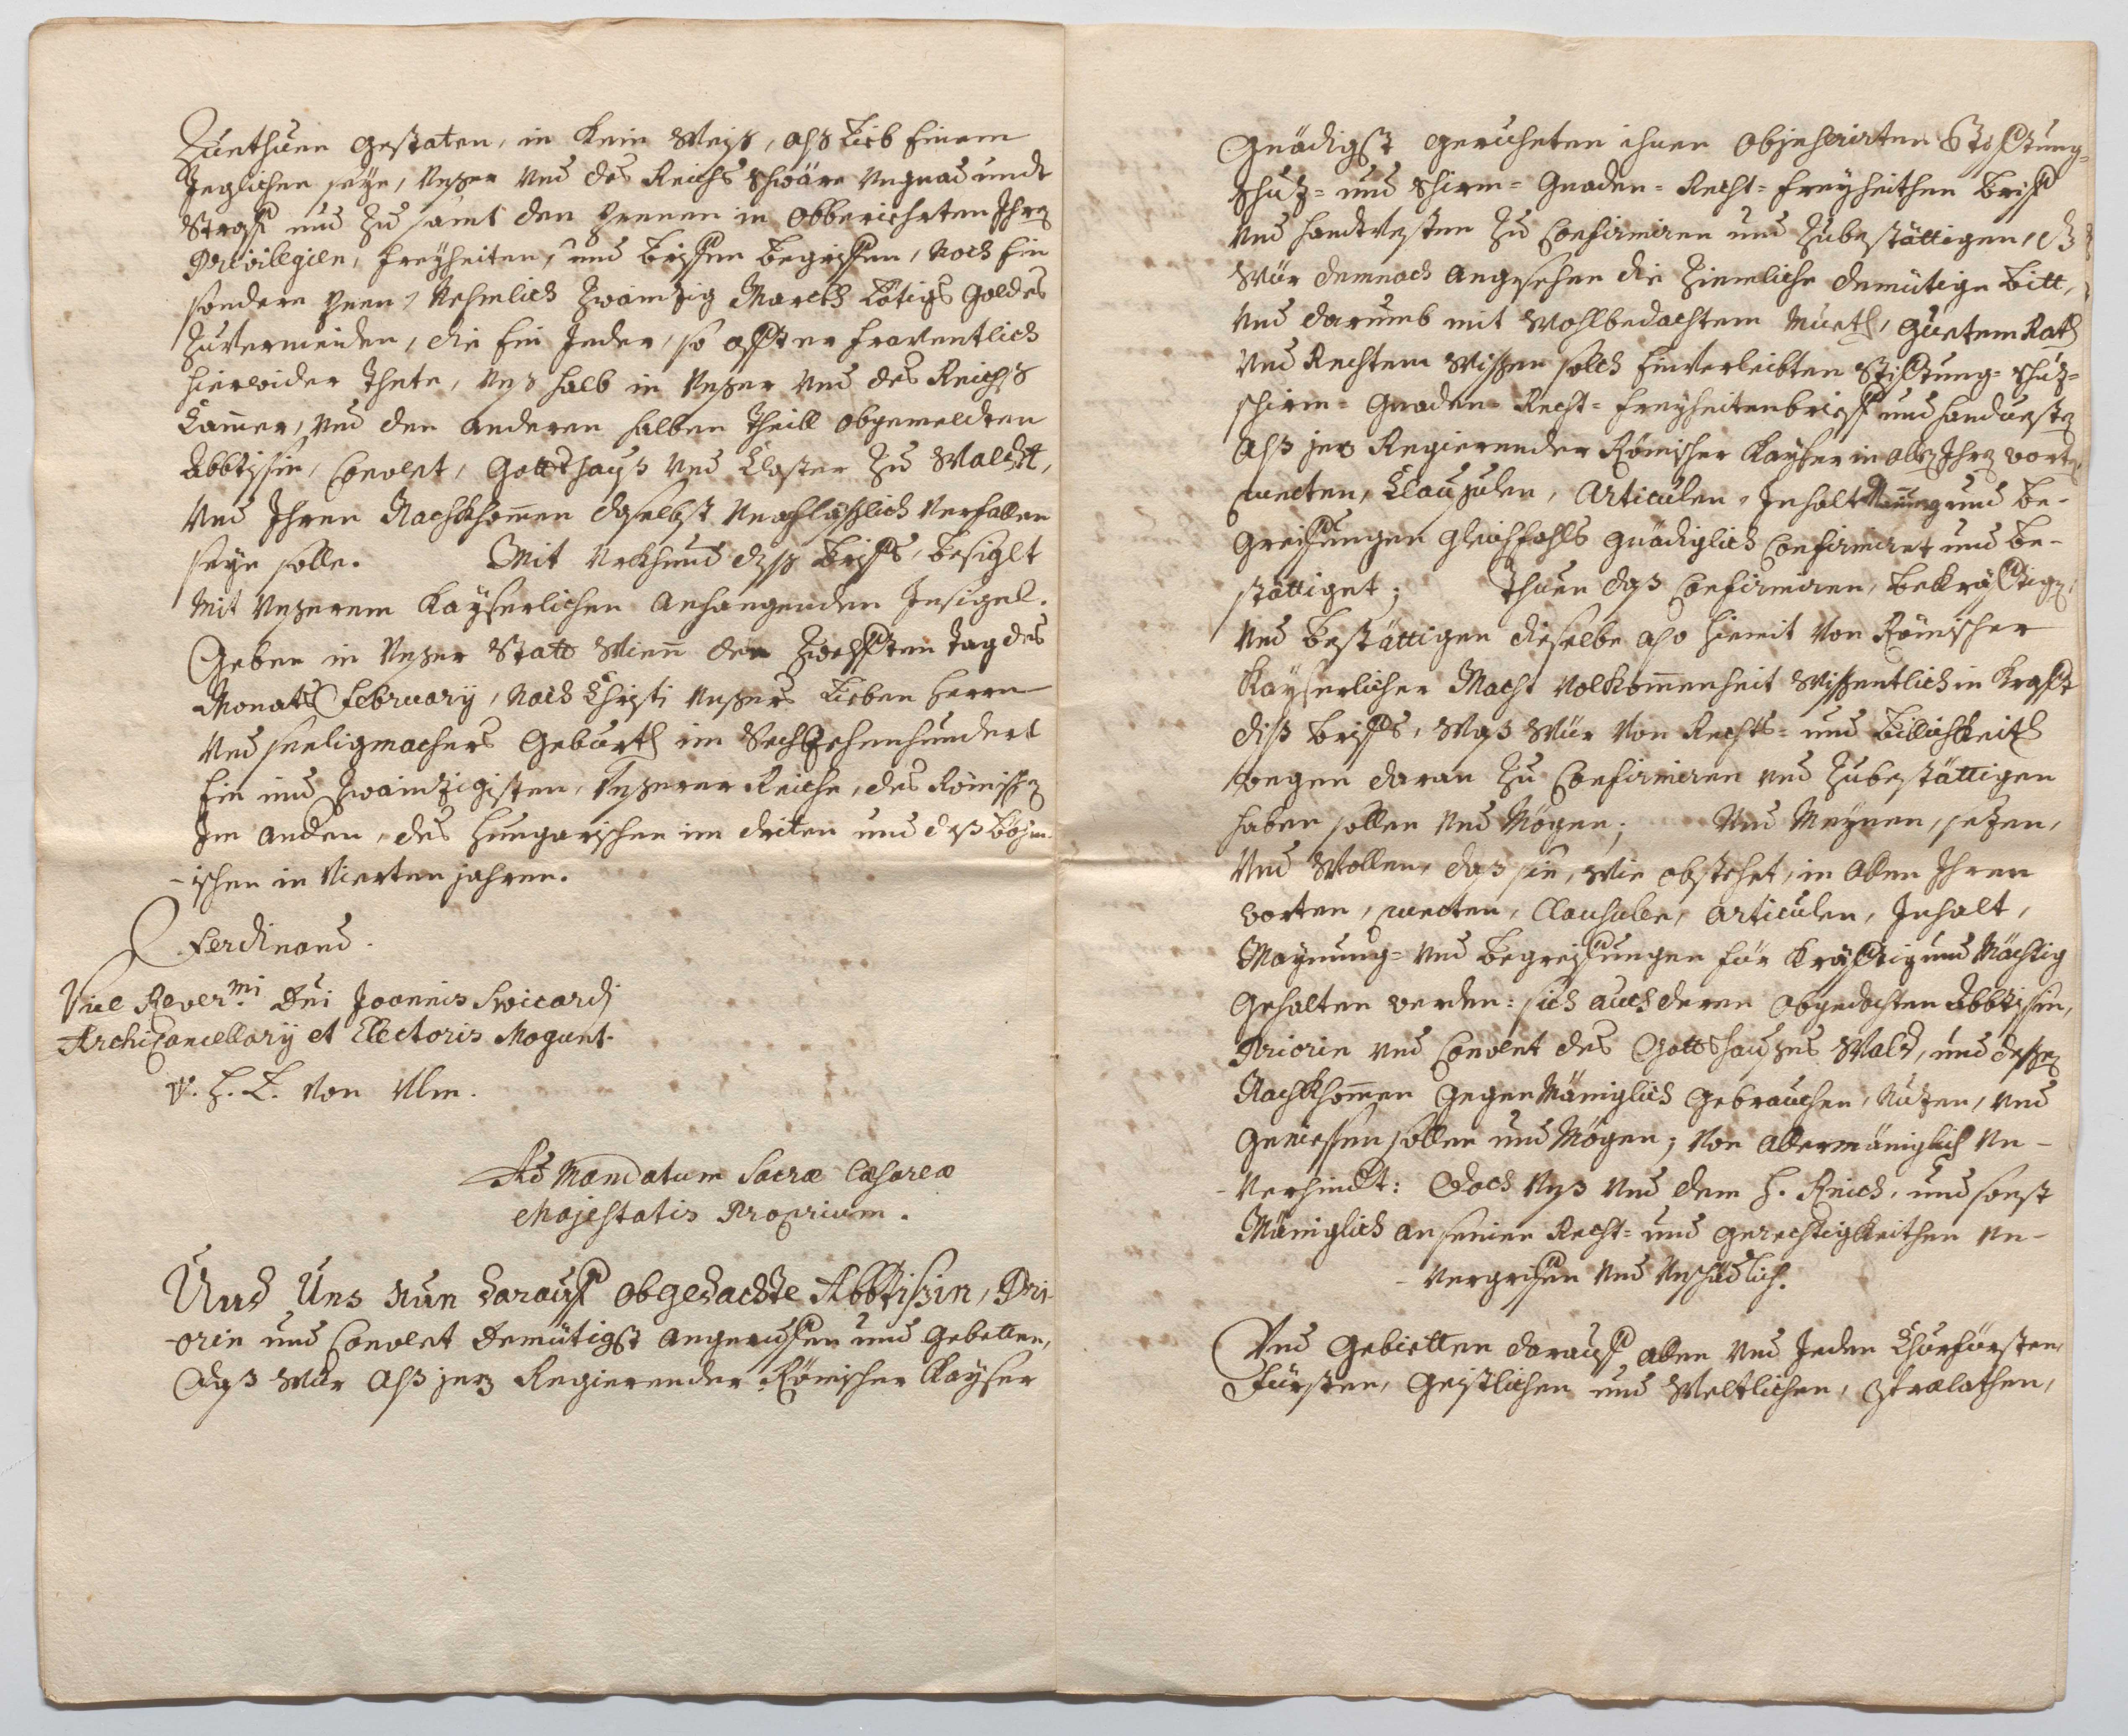 Zuethuen gestaten, in kein Weiß, alß Lieb Einem
Jeglichen seye, Unßer Und des Reichs schwäre Ungnad undt
Straff und zu samt den Penen in obberierten Ihren
Privilegien, freyheiten, und brieffen begriffen, Noch Ein
sondere Peen, Nehmlich Zwainzig Marckh Lötigs Goldes
Zuvermeiden, die Ein Jeder, so offt er fraventlich
hierwider Thete, Unß halb in Unßer Und des Reichß
Camer, Und den anderen halben Theill obgemeldten
Abbtissin, Convent, Gottshauß Und Closter zu Waldt,
Und Ihren Nachkhomen daselbst Unachläßlich Verfallen
seye solle. Mit Urkhund diß Brieffs, besiglt
Mit Unßerem Kayserlichen anhangenden Insigel.
Geben in Unßer Statt Wienn den Zwelfften tag des
Monats February, Nach Christi Unßers Lieben Herrn
Und seeligmachers Geburth im Sechzehenhundert
Ein und Zwainzigisten, Unßerer Reiche, des Römischen
Im anden, des Hungarischen im driten und deß Böhm-
-ischen in Vierten jahren.
Ferdinand.
Vice Rever.mi Dni Joannis Swicardj
Archicancellarij et Electoris Mogunt.
V. H. L. Von Ulm.
Ad Mandatum Sacræ Cæsareæ
Majestatis Proprium.
Und Uns nun darauff obgedachte Abbtißin, Pri
-orin und Convent demütigst angerueffen und gebetten,
Daß Wür alß jezt Regierender Römischer Kayser
Gnädigst geruheten ihnen obinserirten Stifftung-
Schuz- und Schirm- Gnaden- Recht- freyheithen brieff
Und handtvesten zu Confirmiren und zubestättigen,
Wür demnach angesehen die ziemliche demütige bitt,
Und darumb mit Wohlbedachtem Mueth, guetem Rath
Und Rechtem Wissen solch Einverleibten Stifftung- schuz-
schirm- Gnaden- Recht- freyheitenbrieff und handvesten
Alß jezt Regierender Römischer Kayser in allen Ihren worten,
puncten, Clausulen, Articulen, Inhalt Mainung und be-
Greiffungen gleichfahls gnädiglich Confirmiret und be-
stättiget; Thuen daß Confirmiren, bekräfftigen,
Und bestättigen dieselbe also hiemit Von Römischer
Kayserlicher Macht Volkommenheit Wissentlich in Krafft
diß brieffs, Waß Wür Von Rechts- und billichkeith
wegen daran zu Confirmiren und zubestättigen
haben sollen Und Mögen; Und Meynen, sezen,
Und Wollen, daß sie, wie obstehet, in allen Ihren
worten, puncten, Clausulen, articulen, Inhalt,
Maynung- und begreiffungen für Kräfftig und Mächtig
Gehalten werden: sich auch deren obgedachten Abbtissin,
Priorin und Convent des Gottshaußes Wald, und dessen
Nachkhomen gegen Mäniglich Gebrauchen, Nuzen, und
Geniessen sollen und Mögen; Von allermäniglich Un-
-Verhindt: Doch Unß Und dem H. Reich, und sonst
Mäniglich an seinen Recht- und gerechtigkeithen Un-
-Vergriffen Und Unschädlich.
Und Gebietten darauff allen Und Jeden Churfürsten
Fürsten, Geistlichen und Weltlichen, Prælathen,